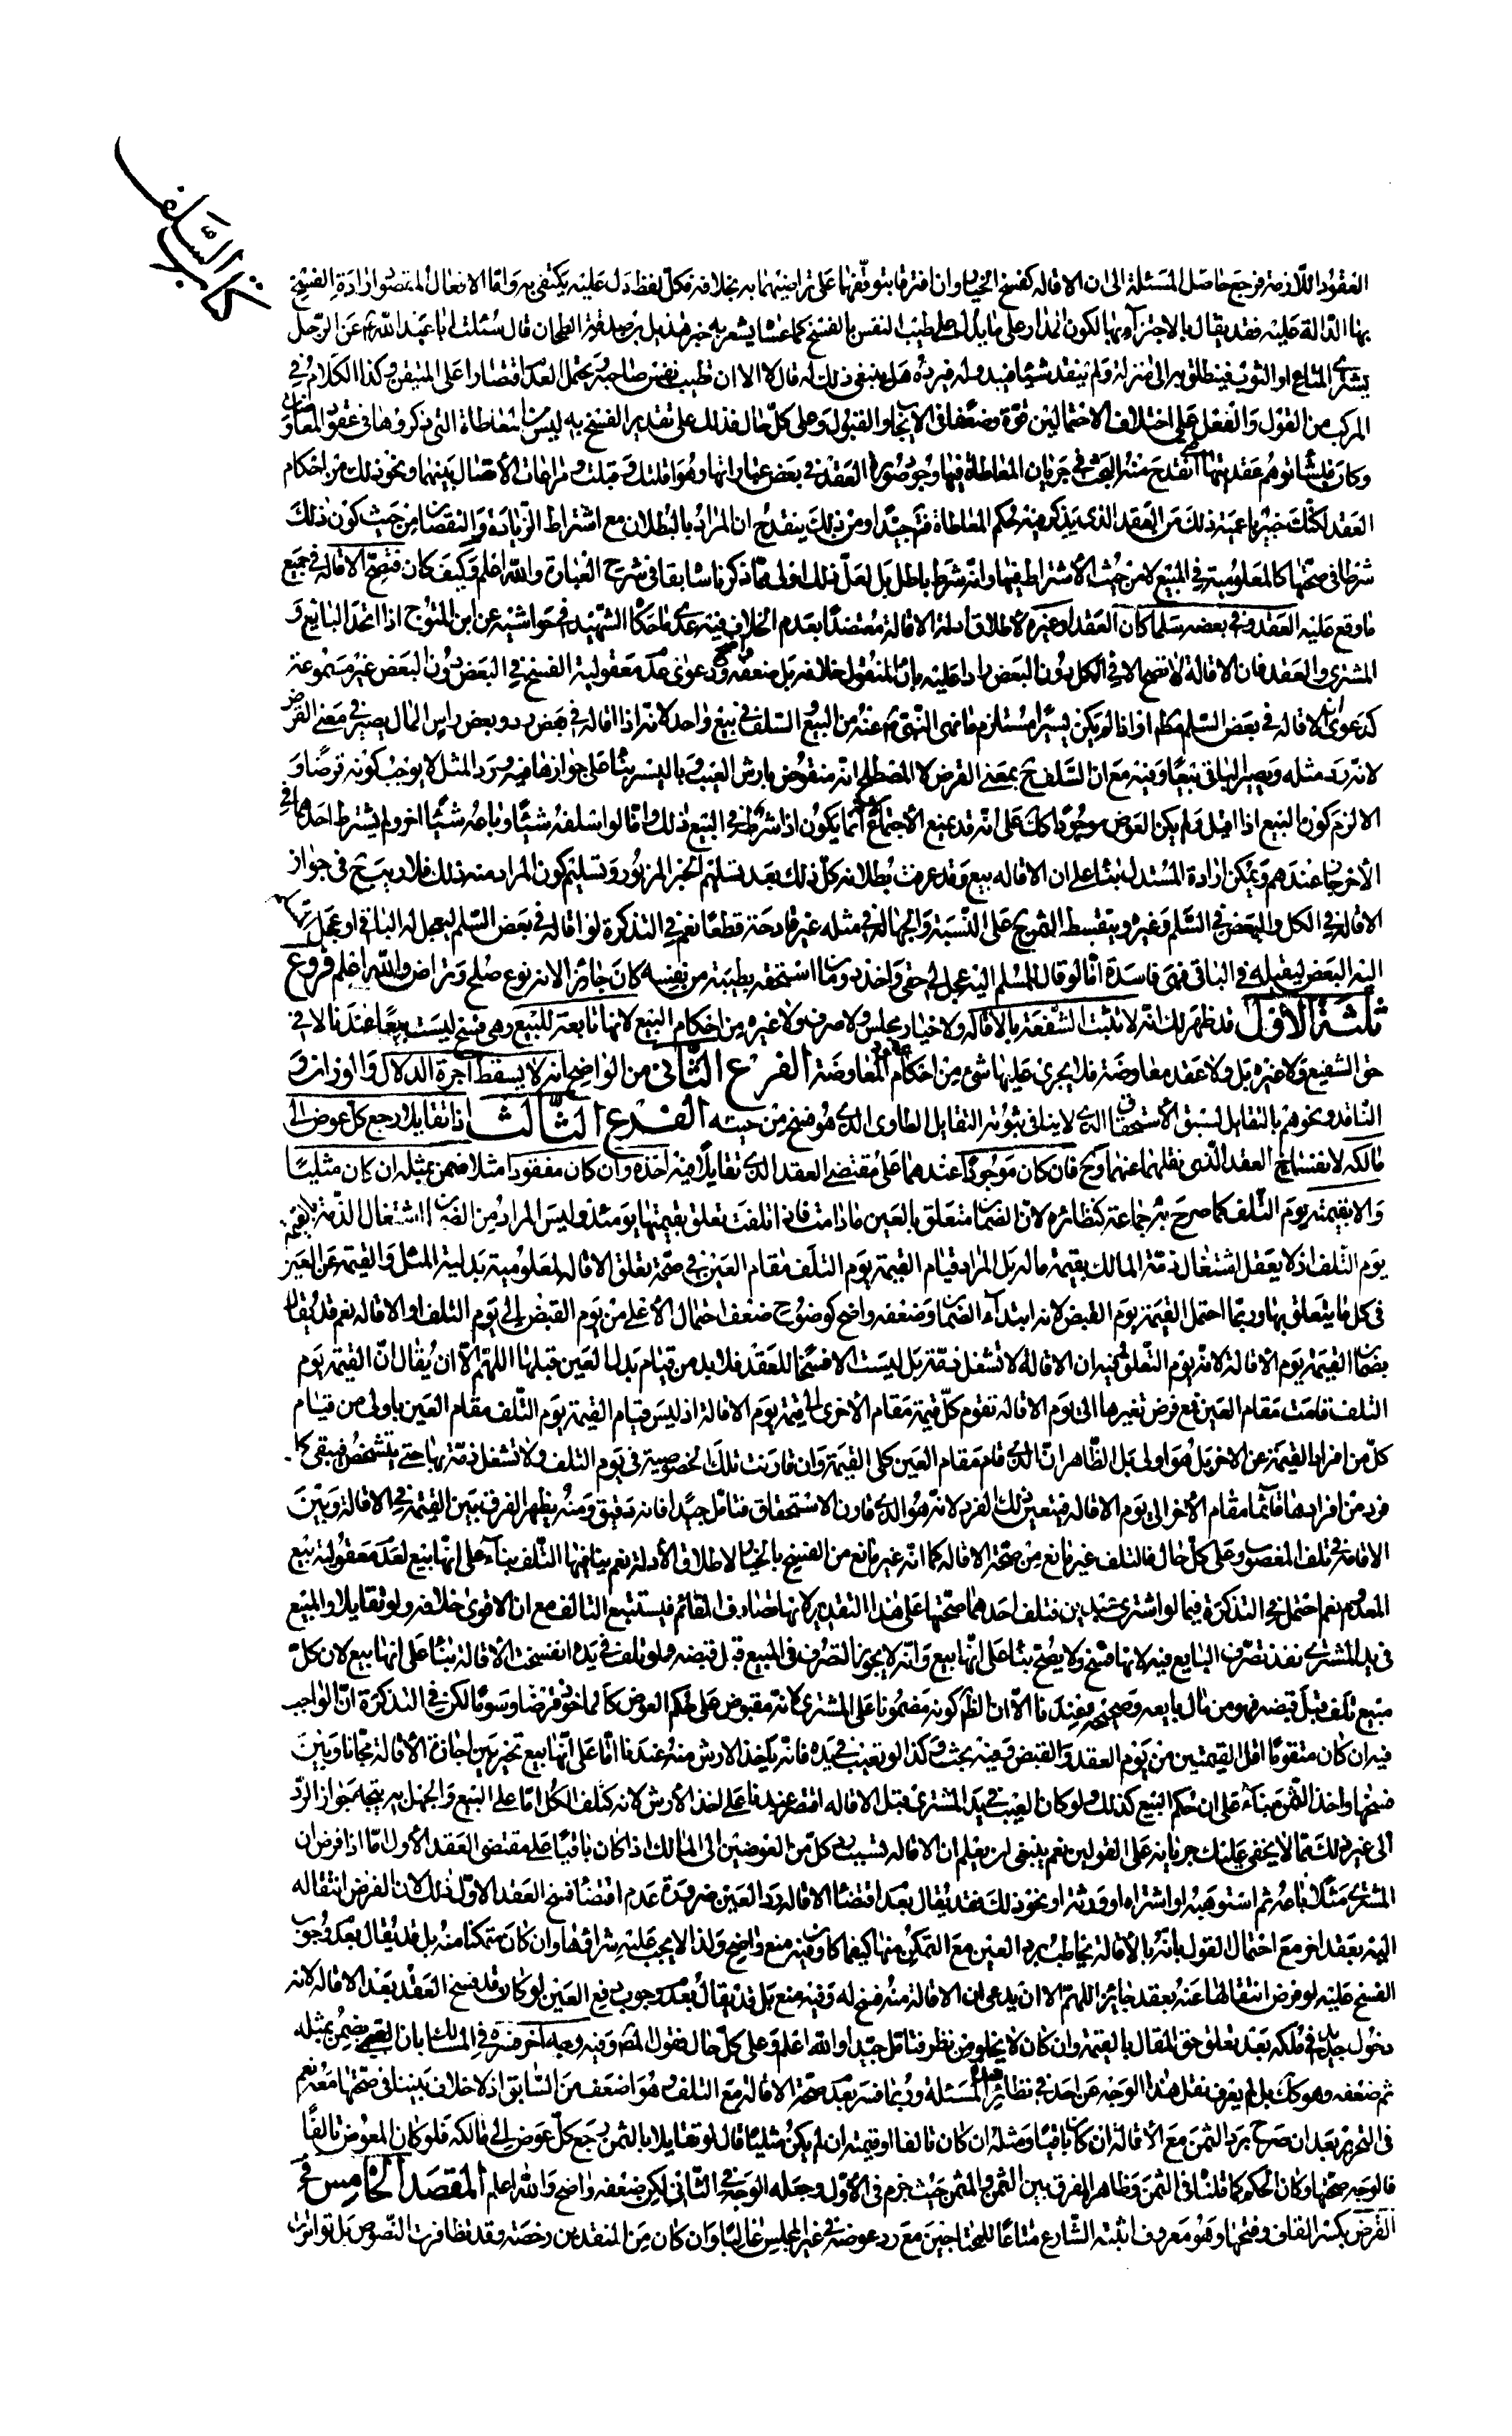 كتاب السلف
العقود اللازمة فرجع حاصل المسئلة الى ان الاقالة كفسخ الخيار وان افترقا بتوقفها على تراضيهما به بخلافه فكل لفظ دل عليه يكتفى به واما الافعال المقصود ارادة الفسخ
بها الدالة عليه فقد يقال بالاجتزاء بها لكون المدار على ما يدل على طيب النفس بالفسخ كما عساه يشعر به خبر هذيل بن صدقة الطحان قال سئلت ابا عبد الله ع عن الرجل
يشترى المتاع او الثوب فينطلق به الى منزله ولم ينقد شيئا فيبدو له فيرده هل ينبغى ذلك له قال لا الا ان تطيب نفس صاحبه ويحتمل العدم اقتصارا على المتيقن وكذا الكلام فى
المركب من القول والفعل على اختلاف الاحتمالين قوة وضعفا فى الايجاب والقبول وعلى كل حال فذلك على تقدير الفسخ به ليس من المعاطاة التى ذكروها فى عقود المعاوضات
وكان منشأ توهم عقديتها انقدح منه البحث فى جريان المعاطاة فيها وجود صورة العقد فى بعض عباراتها وهو اقلتك وقبلت ومراعات الاتصال بينهما ونحو ذلك من احكام
العقد لكنك خبير باعمية ذلك من العقد الذى يذكر فيه حكم المعاطاة فتأمل جيدا ومن ذلك ينقدح ان المراد بالبطلان مع اشتراط الزيادة والنقصان من حيث كون ذلك
شرطا فى صحتها كالمعلومية فى المبيع لا من حيث الاشتراط فيها وانه شرط باطل بل لعل ذلك اولى مما ذكرناه سابقا فى شرح العبارة والله اعلم وكيف كان فتصح الاقالة فى جميع
ما وقع عليه العقد وفى بعضه سلما كان العقد او غيره لاطلاق ادلة الاقالة معتضدا بعدم الخلاف فيه عدى ما حكاه الشهيد فى حواشيه عن ابن المتوج اذا اتحد البائع و
المشترى والعقد فان الاقالة لا تصح الا فى الكل دون البعض رادا عليه بان المنقول خلافه بل ضعفه واضح ودعوى عدم معقولية الفسخ فى البعض دون البعض غير مسموعة
كدعوى ان الاقالة فى بعض السلم مطلقا او اذا لم يكن يسيرا مستلزم ما نهى النبى ص عنه من البيع والسلف فى بيع واحد لانه اذا اقاله فى بعض ورد بعض راس المال يصير فى معنى القرض
لانه رد مثله ويصير الباقى بيعا وفيه مع ان السلف ح بمعنى القرض لا المصطلح انه منقوض بارش العيب وباليسير بناء على جوازها فيه ورد المثل لا يوجب كونه قرضا و
الا لزم كون البيع اذا اقيل ولم يكن العوض موجودا كك على انه قد يمنع الاجتماع كما يكون اذا شرط فى البيع ذلك واما لو اسلفه شيئا وباعه شيئا اخر ولم يشترط احدهما فى
الاخر جاز عندهم ويمكن ارادة المستدل بناء على ان الاقالة بيع وقد عرفت بطلانه كل ذلك بعد تسليم الخبر المزبور وتسليم كون المراد منه ذلك فلا ريب ح فى جواز
الاقالة فى الكل والبعض فى السلم وغيره ويتقسط الثمن ح على النسبة والجهالة فى مثله غير قادحة قطعا نعم فى التذكرة لو اقاله فى بعض السلم ليعجل له الباقى او عجل
اليه البعض ليقيله فى الباقى فهى فاسدة اما لو قال المسلم اليه عجل لى حقى واخذ دون ما استحقه بطيبة من نفسه كان جائزا لانه نوع صلح وتراض والله اعلم فروع
ثلثة الاول قد ظهر لك انه لا تثبت الشفعة بالاقالة ولا خيار مجلس ولا صرف ولا غيره من احكام البيع لانها تابعة للبيع وهى فسخ ليست بيعا عندنا لا فى
حق الشفيع ولا غيره بل ولا عقد معاوضة فلا يجرى عليها شىء من احكام المعاوضة الفرع الثانى من الواضح انه لا يسقط اجرة الدلال والوزان و
الناقد ونحوهم بالتقايل لسبق الاستحقاق الذى لا ينافى ثبوته التقايل الطارى الذى هو فسخ من حينه الفرع الثالث اذا تقايلا رجع كل عوض الى
مالكه لانفساخ العقد الذى نقلهما عنهما وح فان كان موجودا عندهما على مقتضى العقد الذى تقايلا فيه اخذه وان كان مفقودا مثلا ضمن بمثله ان كان مثليا
والا بقيمته يوم التلف كما صرح به جماعة كنظائره لان الضمان متعلق بالعين ما دامت فاذا تلفت تعلق بقيمتها يومئذ وليس المراد من الضمان اشتغال الذمة بالقيمة
يوم التلف اذ لا يعقل اشتغال ذمة المالك بقيمة ماله بل المراد قيام القيمة يوم التلف مقام العين فى صحة تعلق الاقالة لمعلومية بدلية المثل والقيمة عن العين
فى كل ما يتعلق بها وربما احتمل القيمة يوم القبض لانه ابتداء الضمان وضعفه واضح كوضوح ضعف احتمال الاعلى من يوم القبض الى يوم التلف او الاقالة نعم قد يقال
بضمان القيمة يوم الاقالة لانه يوم التعلق وفيه ان الاقالة لا تشغل ذمة بل ليست الا فسخا للعقد فلابد من قيام بدل العين قبلها اللهم الا ان يقال ان القيمة يوم
التلف قامت مقام العين مع فرض تغيرها الى يوم الاقالة تقوم كل قيمة مقام الاخرى الى قيمة يوم الاقالة اذ ليس قيام القيمة يوم التلف مقام العين باولى من قيام
كل من افراد القيمة عن الاخر بل هو اولى بل الظاهر ان الذى قام مقام العين كلى القيمة وان قارنت تلك الخصوصية فى يوم التلف ولا تشغل ذمة بها حتى يتشخص فيبقى كل
فرد من افرادها قائما مقام الاخر الى يوم الاقالة فيتعين ذلك الفرد لانه هو الذى قارن الاستحقاق فتامل جيدا فانه دقيق ومنه يظهر الفرق بين القيمة فى الاقالة وبين
الاقامة فى تلف المغصوب وعلى كل حال فالتلف غير مانع من صحة الاقالة كما انه غير مانع من الفسخ بالخيار لاطلاق الادلة نعم ينافيها التلف بناء على انها بيع لعدم معقولية بيع
المعدوم نعم احتمل فى التذكرة فيما لو اشترى عبدين فتلف احدهما صحتها على هذا التقدير لانها تصادف القائم فيستتبع التالف مع ان الاقوى خلافه ولو تقايلا والمبيع
فى يد المشترى نفذ تصرف البايع فيه لانها فسخ ولا يصح بناء على انها بيع وانه لا يجوز التصرف فى المبيع قبل قبضه ولو تلف فى يده انفسخت الاقالة بناء على انها بيع لان كل
مبيع تلف قبل قبضه فهو من مال بايعه وصحيحة عندنا الا ان الظاهر كونه مضمونا على المشترى لانه مقبوض على حكم العوض كالماخوذ قرضا وسوما لكن فى التذكرة ان الواجب
فيه ان كان متقوما اقل القيمتين من يوم العقد والقبض وفيه بحث وكذا لو تعيب فى يده فانه ياخذ الارش منه عندنا اما على انها بيع تخير بين اجازة الاقالة مجانا وبين
فسخها واخذ الثمن بناء على ان حكم البيع كذلك ولو كان العيب فى يد المشترى قبل الاقالة اقتصر عندنا على اخذ الارش لانه كتلف الكل اما على البيع والجهل به يتجه جواز الرد
الى غير ذلك مما لا يخفى عليك جريانه على القولين نعم ينبغى ان يعلم ان الاقالة تستتبع رد كل من العوضين الى المالك اذا كان باقيا على مقتضى العقد الاول اما اذا فرض ان
المشترى مثلا باعه ثم استوهبه او اشتراه او ورثه او نحو ذلك فقد يقال بعدم اقتضاء الاقالة رد العين ضرورة عدم اقتضاء فسخ العقد الاول ذلك لان الفرض انتقاله
اليه بعقد اخر مع احتمال القول بانه بالاقالة يخاطب برد العين مع التمكن منها كيفما كان وفيه منع واضح ولذا لا يجب عليه شراؤها وان كان متمكنا منه بل قد يقال بعدم وجوب
الفسخ عليه لو فرض انتقالها عنه بعقد جائز اللهم الا ان يدعى ان الاقالة منه فسخ له وفيه منع بل قد يقال بعدم وجوب دفع العين لو كان قد فسخ العقد بعد الاقالة لانه
دخول جديد فى ملكه بعد تعلق حق المقال بالقيمة وان كان لا يخلو من نظر فتامل جيدا والله اعلم وعلى كل حال فقول المصنف وفيه وجه اخر فسره فى المسالك بان القيمى يضمن بمثله
ثم ضعفه وهو كك بل لم يعرف نقل هذا الوجه عن احد فى نظائر المسئلة وربما فسر بعدم صحة الاقالة مع التلف وهو اضعف من السابق اذ لا خلاف بيننا فى صحتها معه نعم
فى التحرير بعد ان صرح برد الثمن مع الاقالة ان كان باقيا ومثله ان كان تالفا او قيمته ان لم يكن مثليا قال لو تقايلا بالثمن رجع كل عوض الى مالكه فلو كان المعوض تالفا
فالوجه صحتها وكان الحكم كما قلناه فى الثمن وظاهره الفرق بين الثمن والمثمن حيث جزم فى الاول وجعله الوجه فى الثانى لكن ضعفه واضح والله اعلم المقصد الخامس فى
القرض بكسر القاف وفتحها وهو معروف اثبته الشارع متاعا للمحتاجين مع رد عوضه فى غير المجلس غالبا وان كان من النقدين رخصة وقد تظافرت النصوص بل تواترت